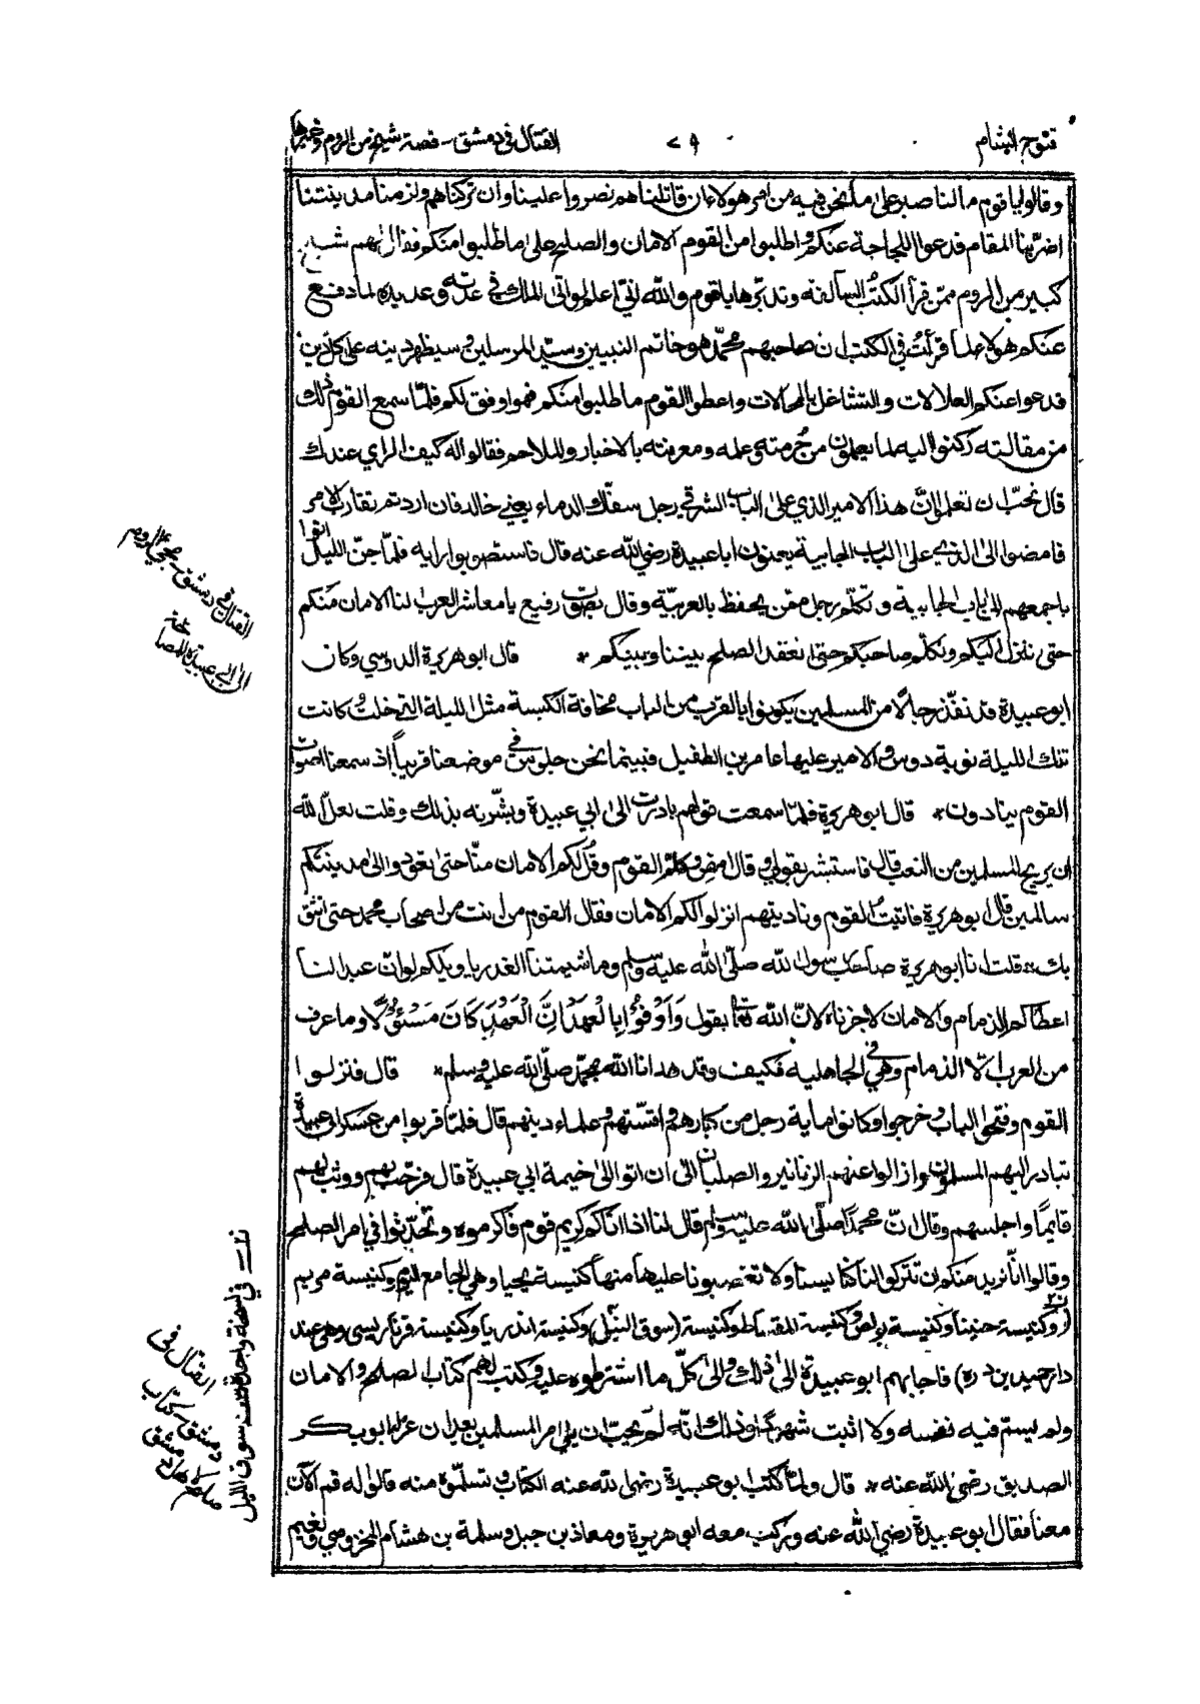 فتوح الشام
٧٩
القتال في دمشق - قصة شيخ من الروم وغيرها
وقالوا يا قوم ما لنا صبر على ما نحن فيه من امر هولاء ان قاتلناهم نصروا علينا وان تركناهم ولزمنا مدينتنا
اضر بنا المقام فدعوا اللجاجة عنكم واطلبوا من القوم الامان والصلح على ما طلبوا منكم فقال لهم شيخ
كبير من الروم ممن قرأ الكتب السالفة وتدبرها يا قوم والله اني اعلم لو اتى الملك في عدته وعديده لما دفع
عنكم هولاء لما قرأت في الكتب ان صاحبهم محمد هو خاتم النبيين وسيد المرسلين وسيظهر دينه على كل دين
فدعوا عنكم العلالات والتشاغل بالمحالات واعطوا القوم ما طلبوا منكم فهو اوفق لكم فلما سمع القوم ذلك
من مقالته ركنوا اليه لما يعلمون من حُرمته وعلمه ومعرفته بالاخبار والملاحم فقالوا له كيف الراي عندك
قال نحبّ ان تعلموا انّ هذا الامير الذي على الباب الشرقي رجل سفّاك الدماء يعني خالد فان اردتم تقارب الامر
فامضوا الى الذي على الباب الجابية يعنون ابا عبيدة رضي الله عنه قال فاستصوبوا رايه فلمّا جنّ الليل اتوا
باجمعهم الى باب الجابية وتكلم رجل ممن يحفظ بالعربيّة وقال بصوت رفيع يا معاشر العرب لنا الامان منكم
حتى ننزل اليكم ونكلّم صاحبكم حتى نعقد الصلح بيننا وبينكم * قال ابو هريرة الدوسي وكان
ابو عبيدة قد نفّذ رجالًا من المسلمين يكونوا بالقرب من الباب مخافة الكبسة مثل الليلة التي خلت وكانت
تلك الليلة نوبة دوس والامير عليها عامر بن الطفيل فبينما نحن جلوس في موضعنا قريباً اذ سمعنا اصوات
القوم ينادون * قال ابو هريرة فلمّا سمعت قولهم بادرت الى ابي عبيدة وبشّرته بذلك وقلت لعلّ الله
ان يريح المسلمين من التعب قال فاستبشر بقولي وقال امض وكلّم القوم وقُل لكم الامان منّا حتى تعودوا الى مدينتكم
سالمين قال ابو هريرة فاتيتُ القوم وناديتهم انزلوا لكم الامان فقال القوم من انت من اصحاب محمد حتى نثق
بك * قلت انا ابو هريرة صاحب رسول الله صلّى الله عليه وسلم وما شيمتنا الغدر يا ويلكم لو انّ عبدا لنا
اعطاكم الذمام والامان لاجزناه لانّ الله تعالى يقول وَاَوْفُوْا بِالْعَهْدِ اِنَّ الْعَهْدَ كَانَ مَسْئُوْلًا وما عرف
من العرب الّا الذمام وهي في الجاهلية فكيف وقد هدانا الله بمحمّد صلّى الله عليه وسلم * قال فنزلوا
القوم وفتحوا الباب وخرجوا وكانوا ماية رجل من كبارهم واقسّتهم وعلماء دينهم قال فلمّا قربوا من عسكر ابي عبيدة
تبادر اليهم المسلمون وازالوا عنهم الزنانير والصلبان الى ان اتوا الى خيمة ابي عبيدة قال فرحّب بهم ووثب لهم
قايمًا واجلسهم وقال انّ محمداً صلّى الله عليه وسلم قال لنا اذا اتاكم كريم قوم فاكرموه وتحدّثوا في امر الصلح
وقالوا انّا نريد منكم ان تتركوا لنا كنايسنا ولا تغصبونا عليها منها كنيسة يحيا وهي الجامع اليوم وكنيسة مريم
(وكنيسة حنينا وكنيسة بولص وكنيسة المقساط وكنيسة (سوق النيل) وكنيسة اندريا وكنيسة قرناريسى وهي عند
دار حميد بن درة) فاجابهم ابو عبيدة الى ذلك والى كلّ ما اشترطوه عليه وكتب لهم كتاب الصلح والامان
ولم يسمّ فيه نفسه ولا اثبت شهودا وذلك انّه لم يحبّ ان يلي امر المسلمين بعد ان عزله ابو بكر
الصديق رضي الله عنه * قال ولمّا كتب ابو عبيدة رضي الله عنه الكتاب وتسلّموه منه قالوا له قم الآن
معنا فقال ابو عبيدة رضي الله عنه وركب معه ابو هريرة ومعاذ بن جبل وسلمة بن هشام المخزومي ونعيم
القتال في دمشق - مجي الروم
الى ابي عبيدة للمصالحة
في نسخة واحدة سوق الليل
القتال في
دمشق - كتاب
صلح لاهل دمشق